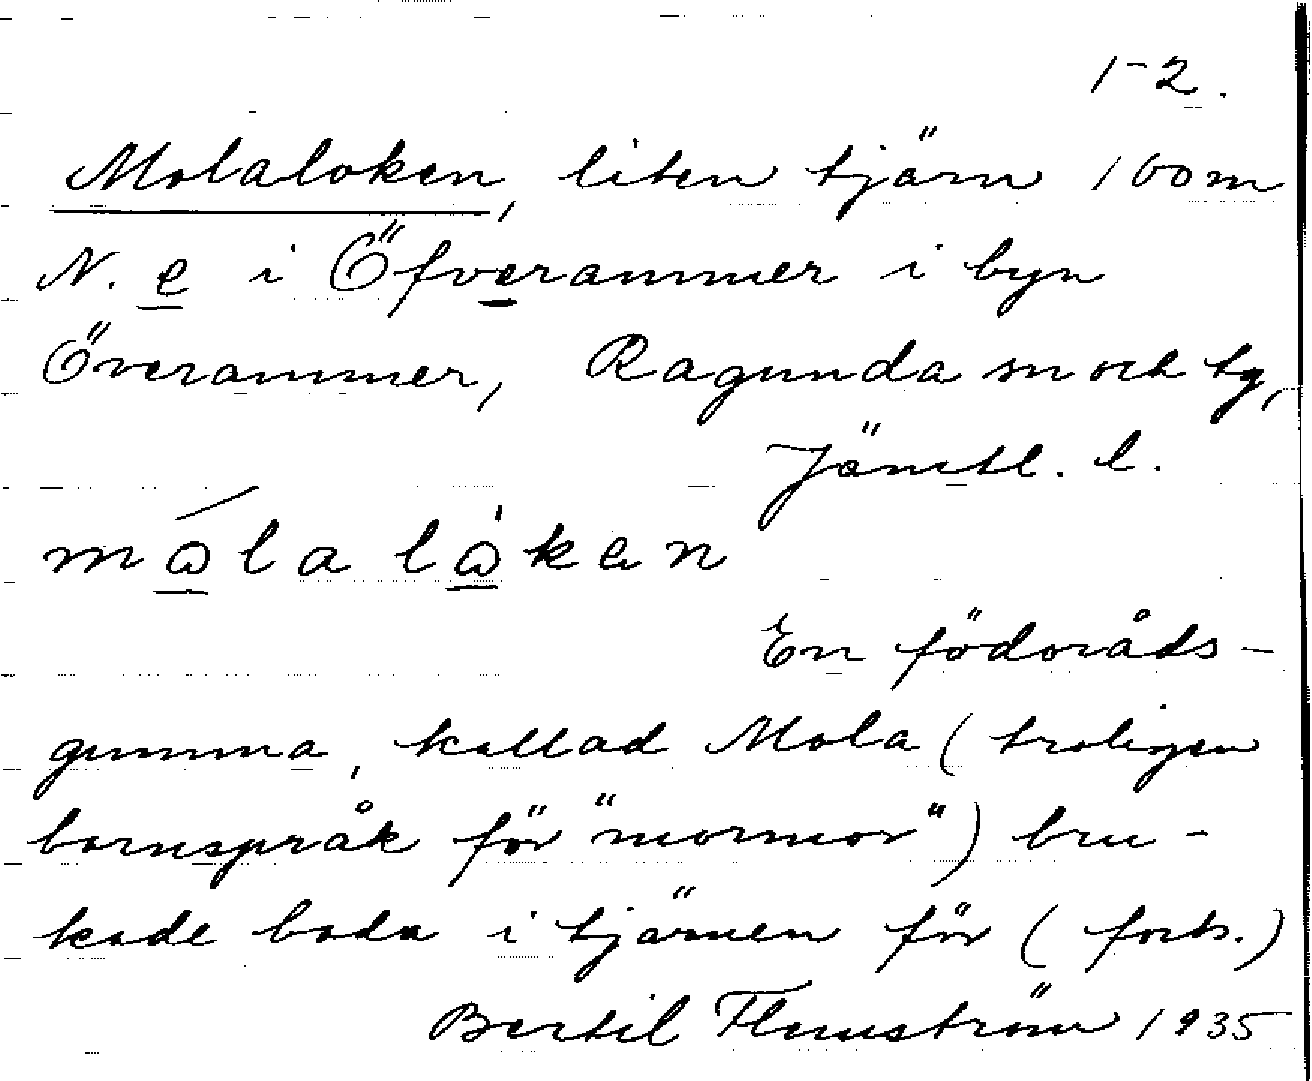 1-2.
Molaloken, liten tjärn 100 m
N. e i Öfverammer i byn
Överammer, Ragunda sn och tg,
Jämtl. l.
måla låken
En födoråds-
gumma, kallad Mola (troligen
barnspråk för "mormor") bru-
kade bada i tjärnen för (forts.)
Bertil Flemström 1935